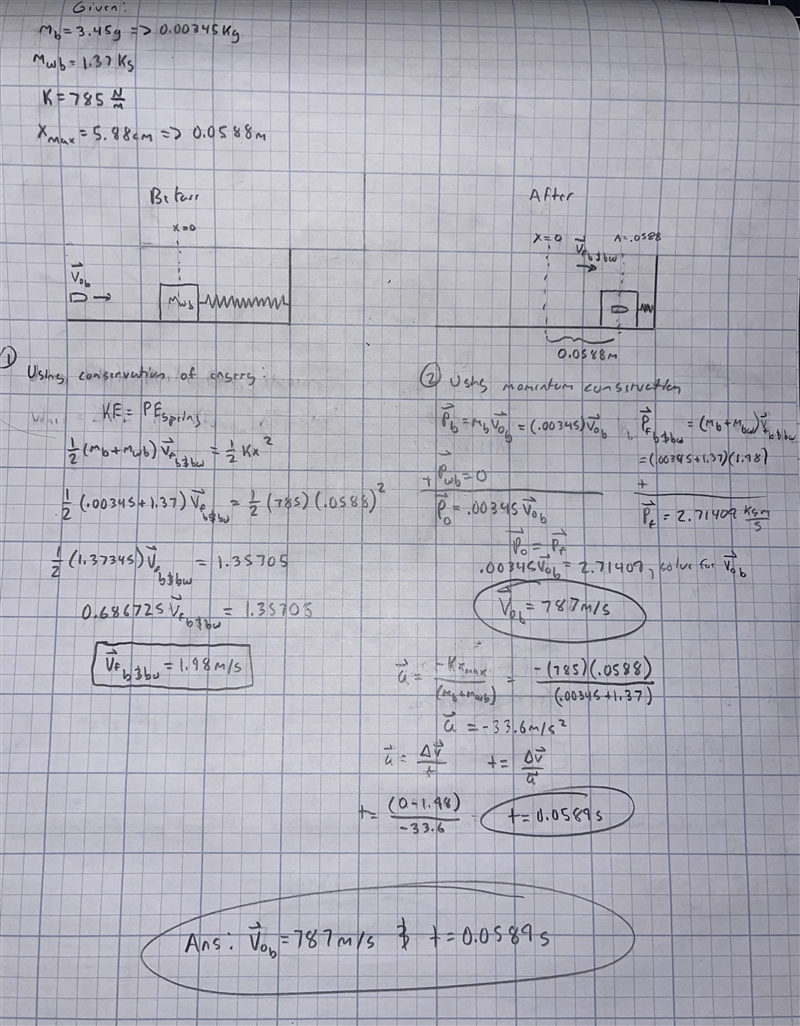 Given:
m_b = 3.45g => 0.00345Kg
m_wb = 1.37 Kg
K = 785 N/m
x_max = 5.88cm => 0.0588m
Before
After
x=0
x=0
A=.0588
V⃗_f b&bw
V⃗_0b
m_wb
0.0588m
① Using conservation of energy:
KE = PE_spring
1/2 (m_b + m_wb) V⃗_f b&bw = 1/2 Kx²
1/2 (.00345+1.37) V⃗_f b&bw = 1/2 (785)(.0588)²
1/2 (1.37345) V⃗_f b&bw = 1.35705
0.686725 V⃗_f b&bw = 1.35705
V⃗_f b&bw = 1.98 m/s
② Using momentum conservation
P⃗_b = m_b V⃗_0b = (.00345) V⃗_0b
P⃗_wb = 0
+
P⃗_0 = .00345 V⃗_0b
P⃗_f b&bw = (m_b + m_bw) V⃗_f b&bw
= (.00345+1.37)(1.98)
+
P⃗_f = 2.71409 kgm/s
P⃗_0 = P⃗_f
.00345 V⃗_0b = 2.71409, solve for V⃗_0b
V⃗_0b = 787 m/s
a⃗ = -Kx_max/(m_b + m_wb) = -(785)(.0588)/(.00345+1.37)
a⃗ = -33.6 m/s²
a⃗ = ΔV⃗/t t = ΔV⃗/a⃗
t = (0-1.98)/-33.6 t = 0.0589 s
Ans: V⃗_0b = 787 m/s & t = 0.0589 s